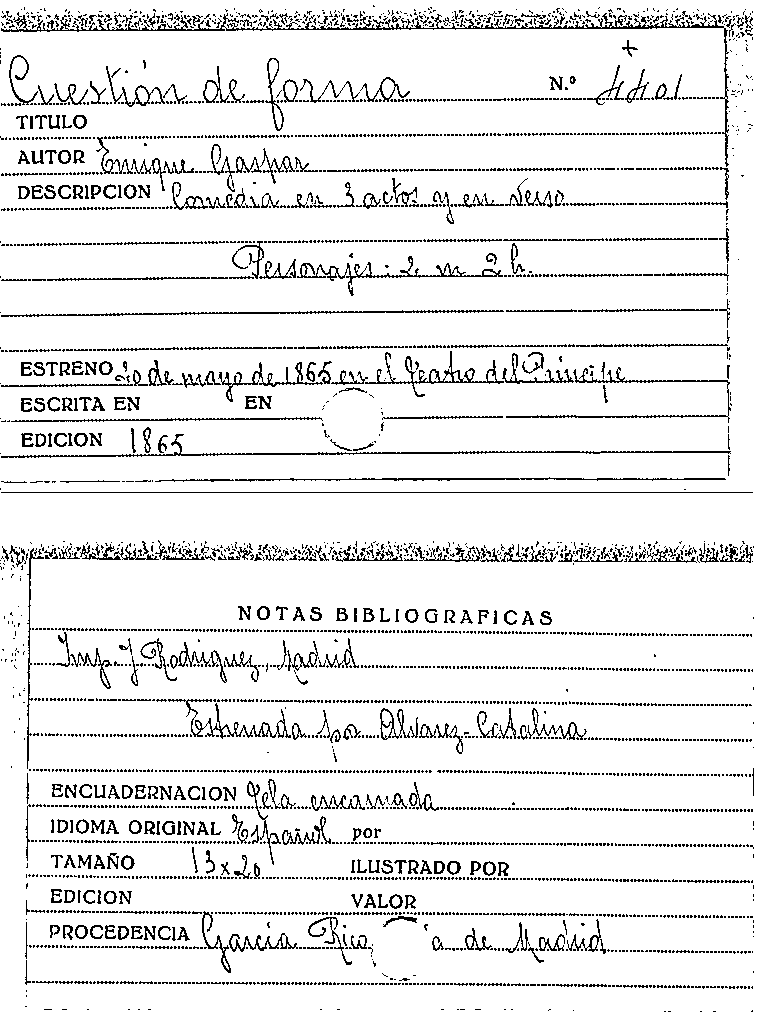 +
Cuestión de forma N.º 4401
TITULO
AUTOR Enrique Gaspar
DESCRIPCION Comedia en 3 actos y en verso
Personajes: 2 m 2 h.
ESTRENO 20 de mayo de 1865 en el Teatro del Principe
ESCRITA EN EN
EDICION 1865
NOTAS BIBLIOGRAFICAS
Imp. J. Rodriguez, Madrid
Estrenada por Alvarez-Catalina
ENCUADERNACION Tela encarnada
IDIOMA ORIGINAL Español por
TAMAÑO 13x20 ILUSTRADO POR
EDICION VALOR
PROCEDENCIA García Rico, a de Madrid